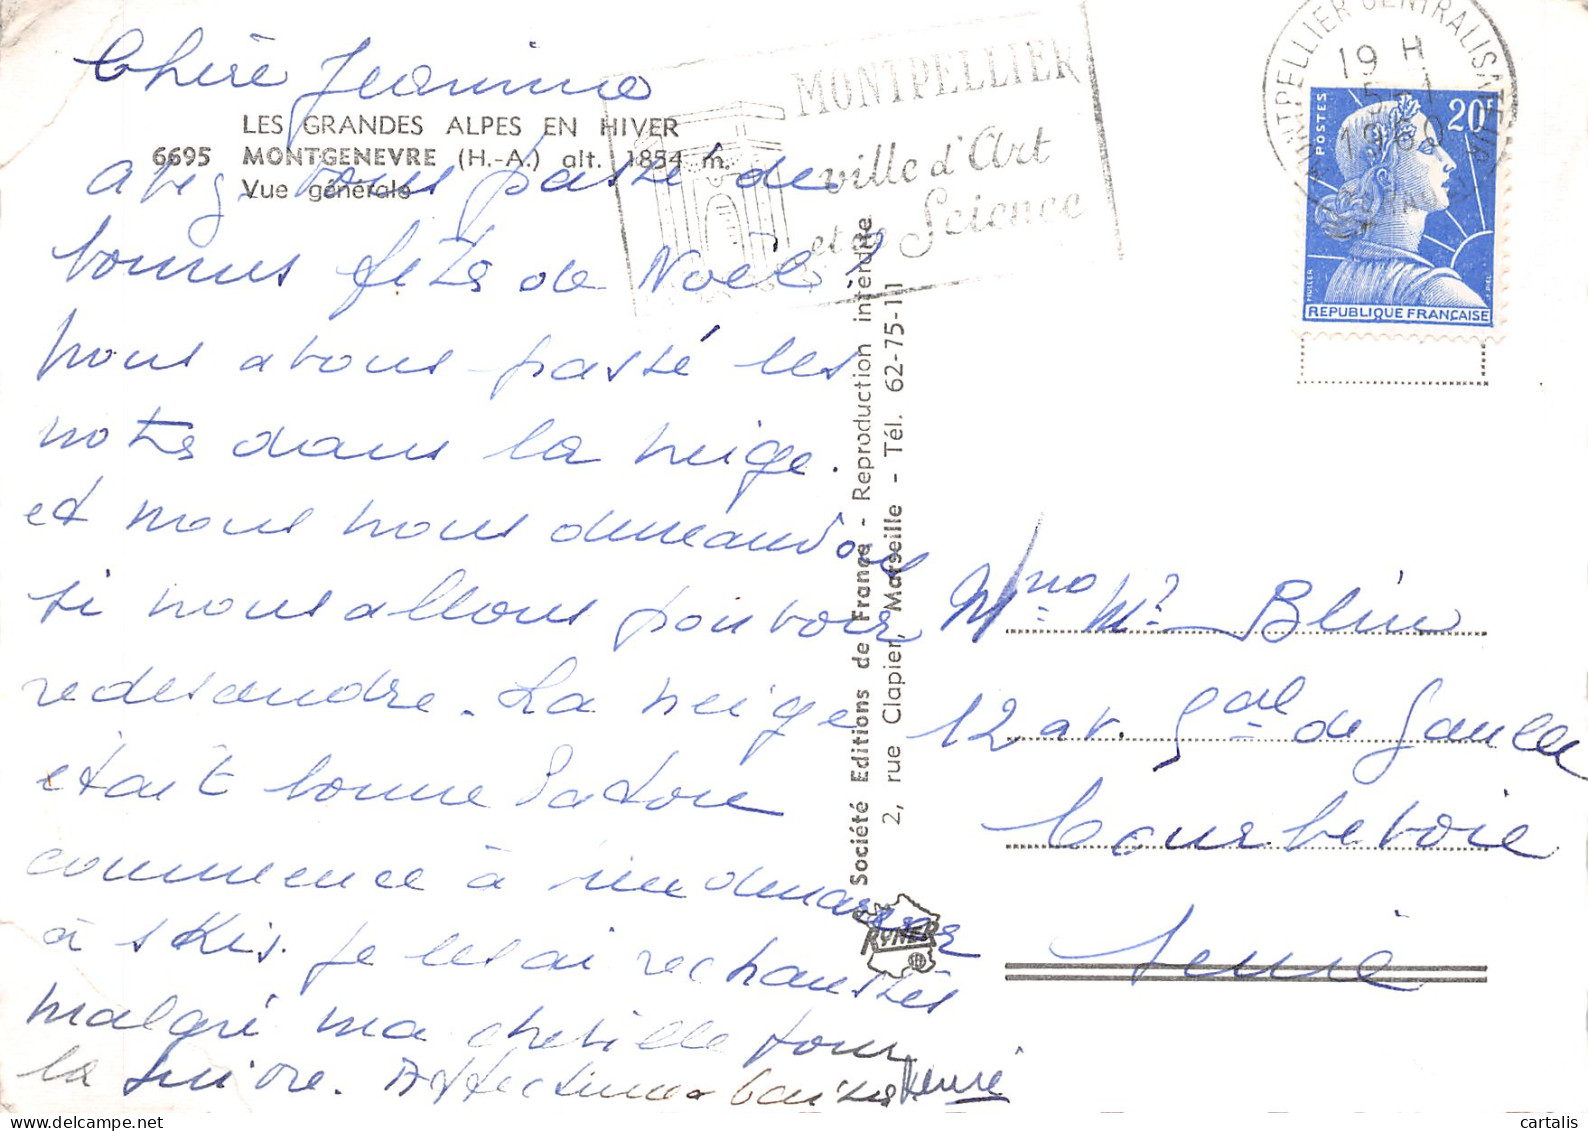 Chère Jeannine
LES GRANDES ALPES EN HIVER
6695 MONTGENEVRE (H.-A.) alt. 1854 m.
Vue générale
avez vous passé de
bonnes fêtes de Noël ?
Nous avons passé les
notres dans la neige.
et nous nous demandons
si nous allons pouvoir
redescendre. La neige
était bonne
commence à
à skis. Je les ai rechaussés
malgré ma cheville pour
la suivre. Affectueux baisers
MONTPELLIER
ville d'Art
et de Science
MONTPELLIER CENTRALISATEUR
19 H
5-1
1960
HERAULT
POSTES
20F
MULLER
J. PIEL
REPUBLIQUE FRANÇAISE
Société Editions de France - Reproduction interdite
2, rue Clapier, Marseille - Tél. 62-75-11
RYNER
SEF
Blin
12 av. Gal de Gaulle
Courbevoie
Seine